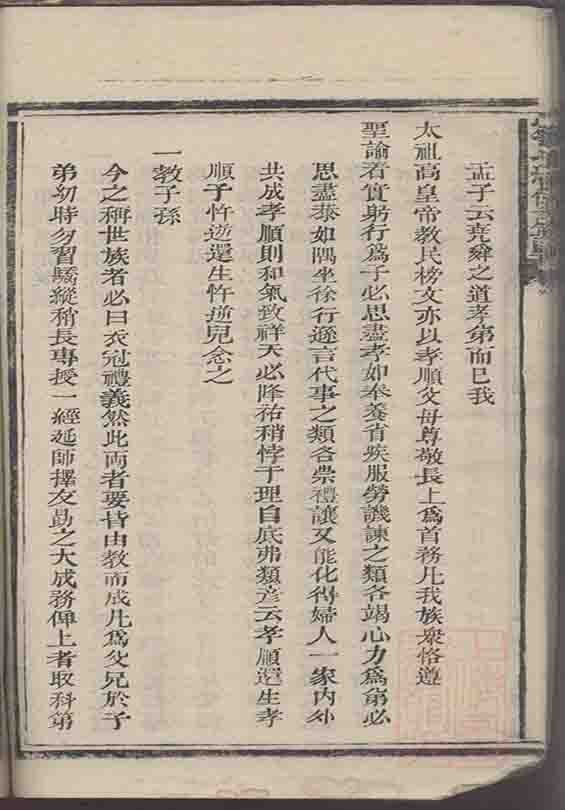 孟子云堯舜之道孝弟而已我
太祖高皇帝教民榜文亦以孝順父母尊敬長上爲首務凡我族衆恪遵
聖諭着實躬行爲子必思盡孝如奉養省疾服勞譏諫之類各竭心力爲弟必
思盡恭如隅坐徐行遜言代事之類各崇禮讓又能化得婦人一家内外
共成孝順則和氣致祥天必降祐稍悖于理自底弗類諺云孝順還生孝
順子忤逆還生忤逆兒念之
一教子孫
今之稱世族者必曰衣冠禮義然此兩者要皆由教而成凡爲父兄於子
弟幼時勿習驕縱稍長專授一經延師擇友勗之大成務俾上者取科第